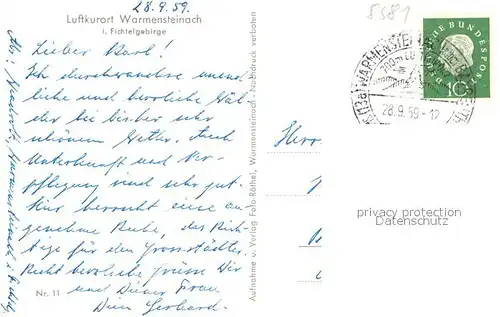 28.9.59.
Luftkurort Warmensteinach
i. Fichtelgebirge
Lieber Karl!
Ich durchwandere unend-
liche und herrliche Wäl-
der bei bisher sehr
schönem Wetter. Auch
Unterkunft und Ver-
pflegung sind sehr gut.
Hier herrscht eine an-
genehme Ruhe, das Rich-
tige für den Grosstädter.
Recht herzliche Grüsse Dir
und Deiner Frau
Dein Gerhard.
Nr. 11
Aufnahme u. Verlag Foto-Böthel, Warmensteinach - Nachdruck verboten
5581
DEUTSCHE BUNDESPOST
10
(13a) WARMENSTEINACH
28.9.59-12
Herrn
privacy protection
Datenschutz